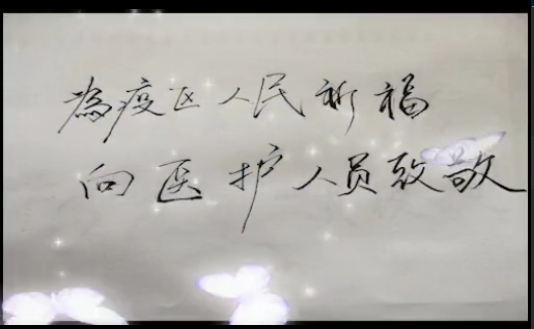 為疫区人民祈福
向医护人员致敬